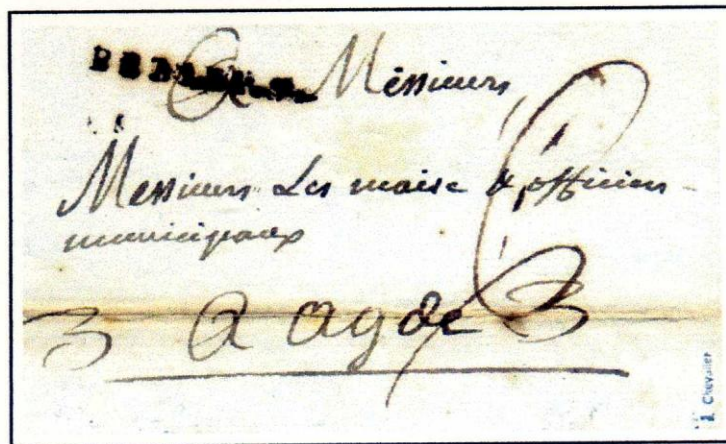 a Messieurs
Messieurs Les maire & officiers
municipaux
a agde
Chevalier